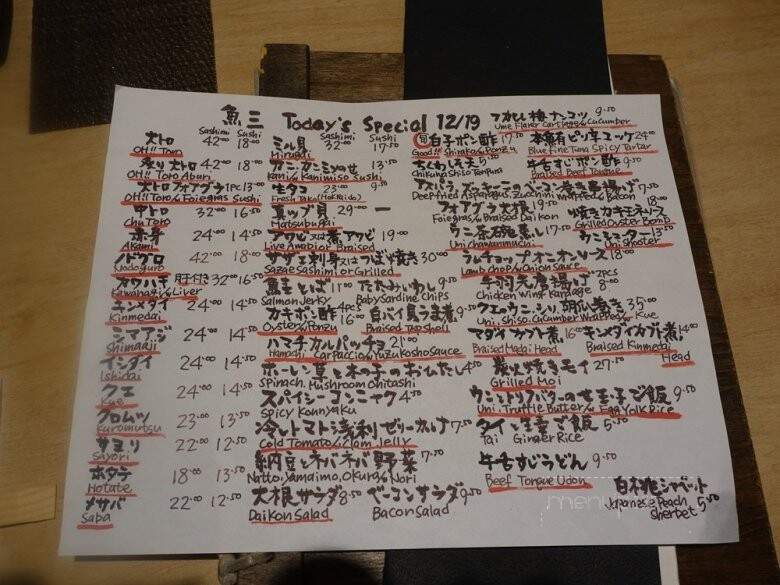 魚三 Today's Special 12/19
Sashimi Sushi
大トロ 42.00 18.00
OH!! Toro
炙り大トロ 42.00 18.00
OH!! Toro Aburi
大トロフォアグラ 1pc 13.00
OH!! Toro & Foiegras Sushi
中トロ 32.00 16.50
Chu Toro
赤身 24.00 14.50
Akami
ノドグロ 42.00 18.00
Nodoguro
カワハギ 肝付き 32.00 16.50
Kawahagi & Liver
キンメダイ 24.00 14.50
Kinmedai
シマアジ 24.00 14.50
Shimaaji
イシダイ 24.00 14.50
Ishidai
クエ 24.00 14.50
Kue
クロムツ 23.00 13.50
Kuromutsu
サヨリ 22.00 12.50
Sayori
ホタテ 18.00 13.50
Hotate
〆サバ 22.00 12.50
Saba
Sashimi Sushi
ミル貝 32.00 17.50
Mirugai
カニ・カニミソのせ 13.50
Kani & Kanimiso Sushi
生タコ 23.00 9.50
Fresh Tako (Hokkaido)
真ツブ貝 29.00 —
Matsubugai
アワビ 又は蒸アワビ 19.00
Live Awabi or Braised
サザエ刺身又はつぼ焼き 30.00
Sazae Sashimi or Grilled
鮭とば 11.00 たたみいわし 9.50
Salmon Jerky Baby Sardine Chips
カキポン酢 4pcs 16.00 白バイ貝うま煮 9.50
Oyster & Ponzu Braised Top Shell
ハマチカルパッチョ 21.00
Hamachi Carpaccio & Yuzu Kosho Sauce
ホーレン草と木の子のおひたし 4.50
Spinach, Mushroom Ohitashi
スパイシーコンニャク 4.50
Spicy Konnyaku
冷しトマト浅利ゼリーカルナ 7.50
Cold Tomato & Clam Jelly
納豆とネバネバ野菜 7.50
Natto, Yamaimo, Okura & Nori
大根サラダ 8.50 ベーコンサラダ 9.50
Daikon Salad Bacon Salad
旬 白子ポン酢 17.50
Good!!! Shirako & Ponzu
5.50
Chikuwa Isino Tempura
アスパラ、ズッキーニのベーコン巻き串揚げ 7.50
Deep fried Asparagus, Zucchini Wrapped & Bacon
フォアグラ大根 19.50
Foiegras & Braised Daikon
ウニ茶碗蒸し 17.50
Uni Chawanmushi
ラムチョップオニオンソース 18.00
Lamb Chop & Onion Sauce
手羽元唐揚げ 2pcs 8.00
Chicken Wing Karaage
クエ、ウニ、シソ、胡瓜巻き 35.00
Uni, Shiso, Cucumber Wrapped & Kue
マダイカブト煮 16.00 キンメダイカブト煮 14.00
Braised Madai Head Braised Kinmedai Head
炭火焼きモイ 27.50
Grilled Moi
ウニとトリュフバターの女玉子ご飯 9.50
Uni, Truffle Butter & Egg Yolk Rice
タイと生姜ご飯 5.50
Tai Ginger Rice
牛舌すじうどん 9.50
Beef Tongue Udon
フカヒレ梅ナンコツ 9.50
Ume Flavor Cartilage & Cucumber
本鮪ピリ辛ユッケ 24.00
Blue Fine Tuna Spicy Tartar
牛舌すじポン酢 9.50
Braised Beef Tongue
18.00
焼きカキマヨネーズ
Grilled Oyster Bomb
ウニシューター 13.50
Uni Shooter
白桃シャーベット
Japanese Peach
Sherbet 5.50